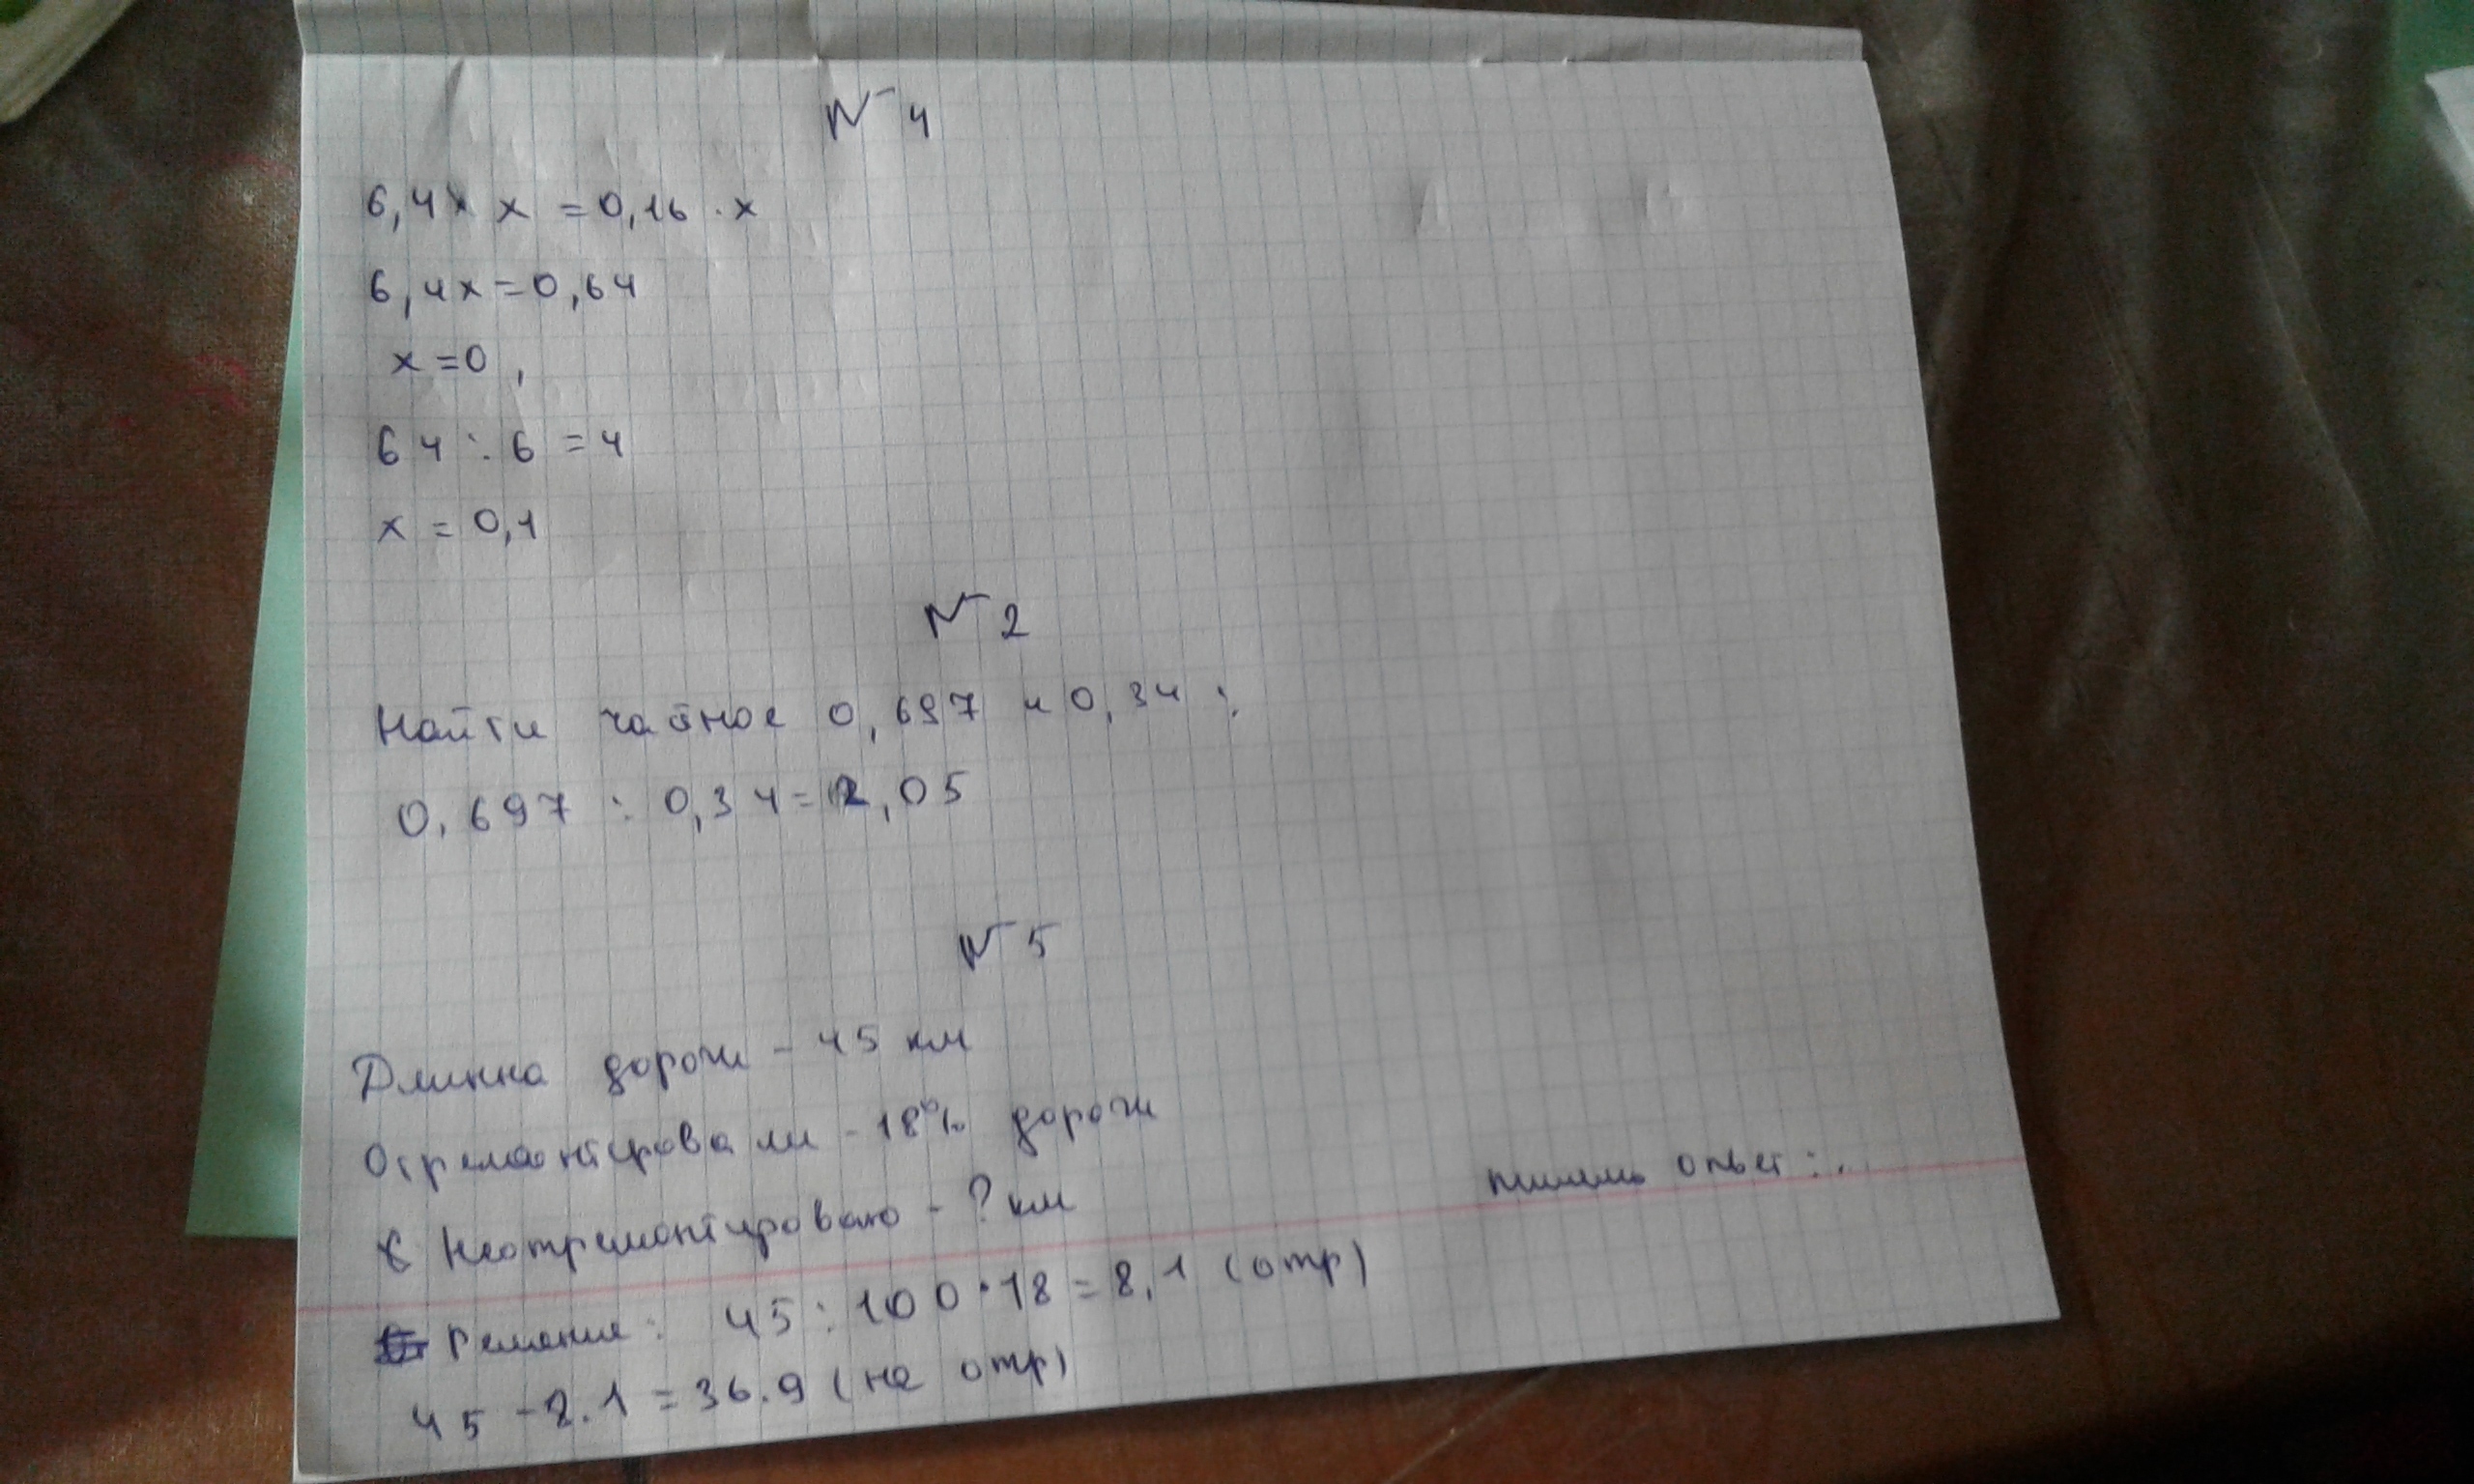 № 4
6,4x x = 0,16 · x
6,4x = 0,64
x = 0,
64 : 6 = 4
x = 0,1
№ 2
Найти чатное 0,697 и 0,34 :
0,697 : 0,34 = 2,05
№ 5
Длинна дороги - 45 км
Отремонтировали - 18% дороги
Неотремонтировано - ? км
пишешь ответ : .
Решение : 45 : 100 · 18 = 8,1 (отр)
45 - 8.1 = 36.9 (не отр)